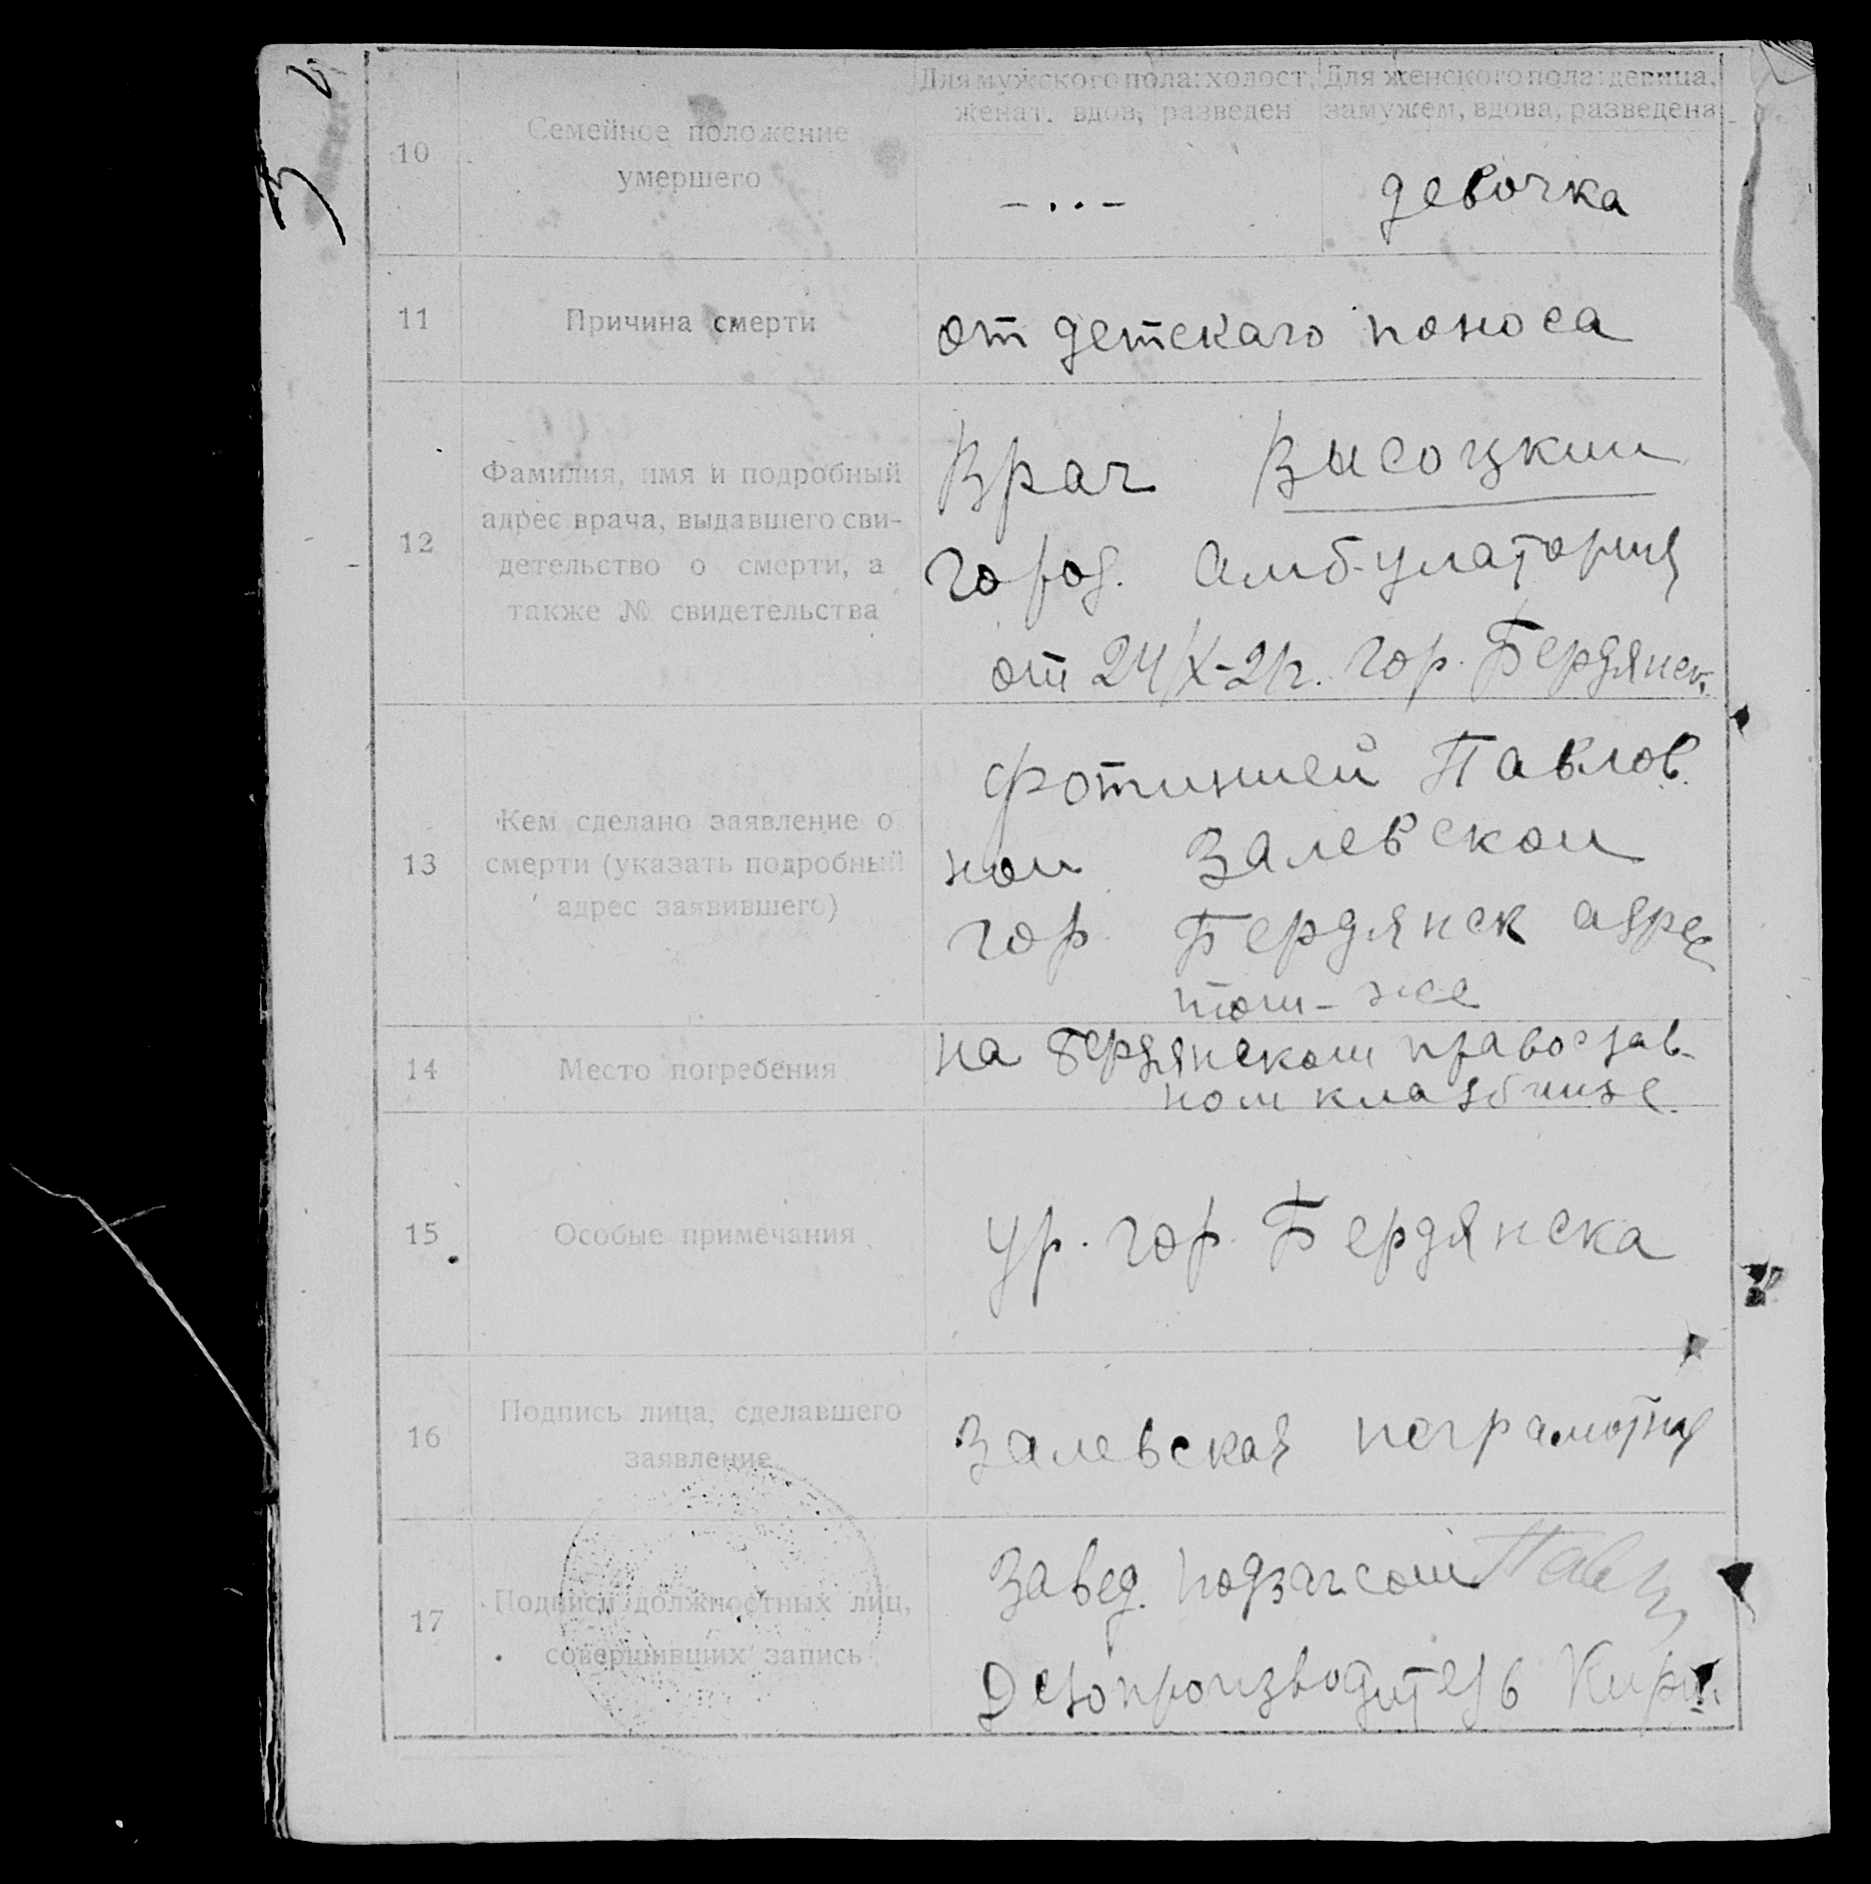 Для мужского пола: холост, женат, вдов, разведен
Для женского пола: девица, замужем, вдова, разведена
10
Семейное положение
умершего
— . . —
девочка
11
Причина смерти
от детскаго поноса
12
Фамилия, имя и подробный
адрес врача, выдавшего сви-
детельство о смерти, а
также № свидетельства
Врач Высоцкии
Город. Амбулатория
от 24/X-21г. гор. Бердянск.
13
Кем сделано заявление о
смерти (указать подробный
адрес заявившего)
Фотинией Павлов.
ной Залевскои
гор. Бердянск адрес
тот-же
14
Место погребения
на бердянском православ-
ном кладбище.
15
Особые примечания
ур. гор. Бердянска
16
Подпись лица, сделавшего
заявление
Залевская неграмотная
17
Подписи должностных лиц,
совершивших запись
Завед. подзагсом
Делопроизводитель